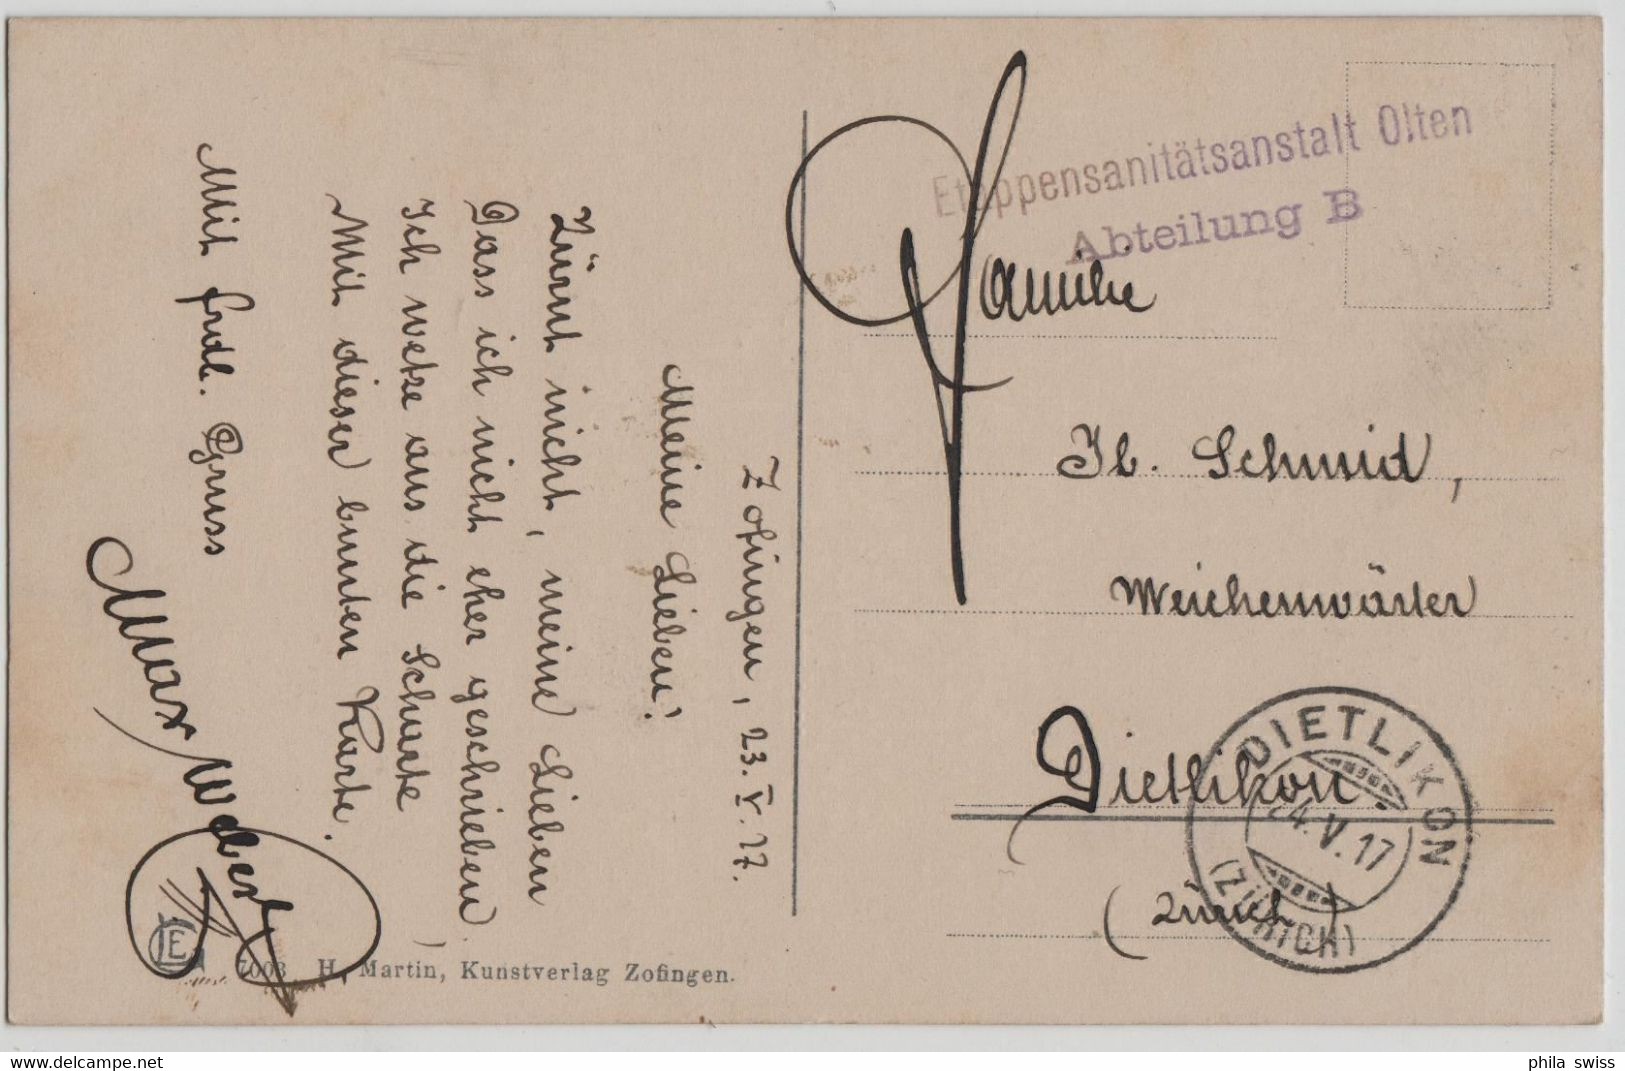 Zofingen, 23. V. 17.
Meine Lieben!
Zürnt nicht, meine Lieben
Dass ich nicht eher geschrieben.
Ich wetze aus die Scharte,
Mit dieser bunten Karte.
Mit frdl. Gruss
Max Weber
7003 H. Martin, Kunstverlag Zofingen.
Etappensanitätsanstalt Olten
Abteilung B
Familie
Jb. Schmid,
Weichenwärter
Dietlikon
(Zürich)
DIETLIKON
24.V.17
(ZÜRICH)
www.delcampe.net
phila_swiss